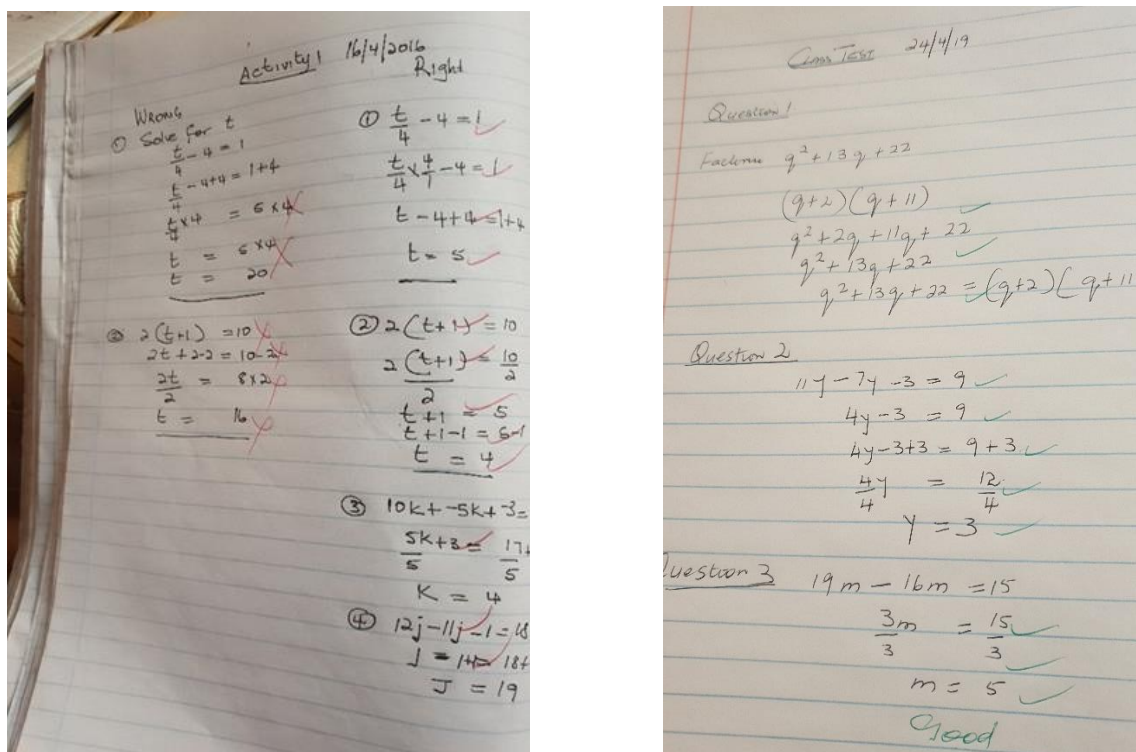 Activity 1 16/4/2016
WRONG
① Solve for t
t/4 - 4 = 1
t/4 - 4+4 = 1+4
t/4 x 4 = 5 x 4
t = 5 x 4
t = 20
② 2(t+1) = 10
2t + 2-2 = 10-2
2t/2 = 8x2
t = 16
Right
① t/4 - 4 = 1
t/4 x 4/1 - 4 = 1
t - 4 + 4 = 1+4
t = 5
② 2(t+1) = 10
2(t+1)/2 = 10/2
t+1 = 5
t+1-1 = 5-1
t = 4
③ 10k + -5k + 3 =
5k+3/5 = 17/5
K = 4
④ 12j - 11j - 1 = 18
J - 1+1 = 18+
J = 19
Class Test 24/4/19
Question 1
Factorise q² + 13q + 22
(q+2)(q+11)
q² + 2q + 11q + 22
q² + 13q + 22
q² + 13q + 22 = (q+2)(q+11
Question 2
11y - 7y - 3 = 9
4y - 3 = 9
4y - 3+3 = 9 + 3
4y/4 = 12/4
Y = 3
Question 3
19m - 16m = 15
3m/3 = 15/3
m = 5
Good